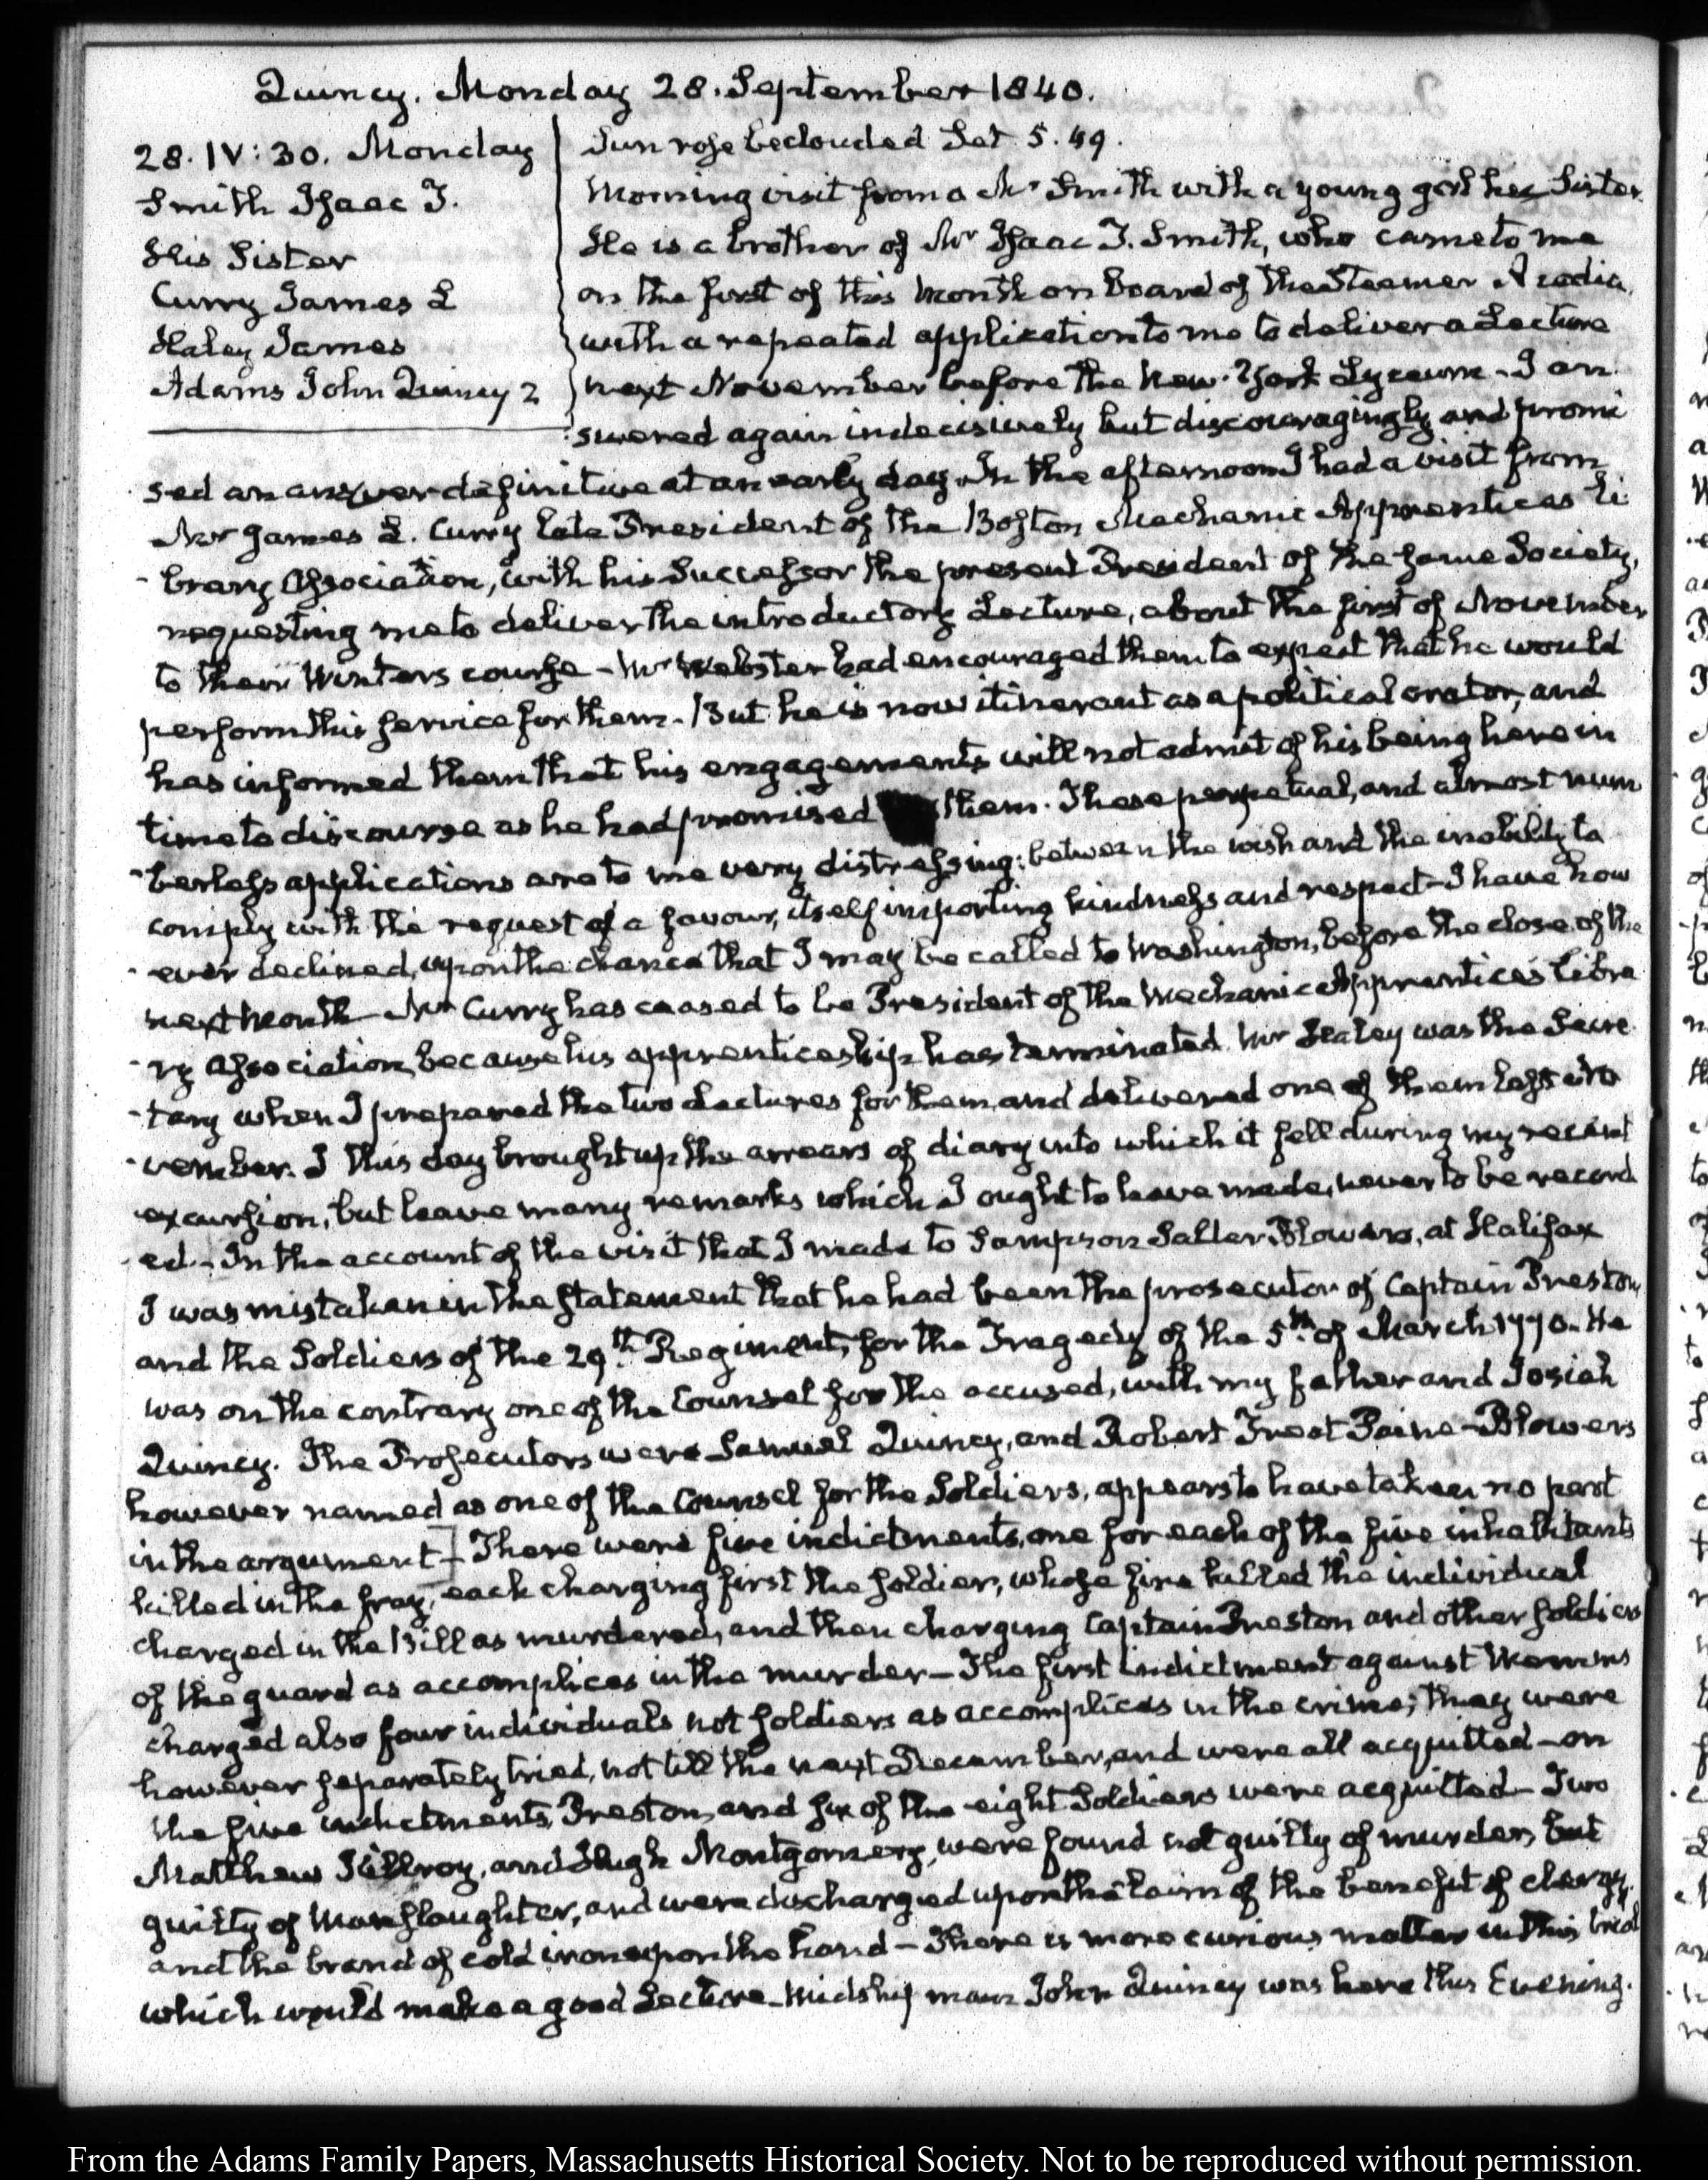 Quincy. Monday 28. September 1840.
28. IV: 30. Monday
Smith Isaac T.
His Sister
Curry James L
Haley James
Adams John Quincy 2
Sun rose beclouded Set 5.49.
Morning visit from a Mr Smith with a young girl his Sister.
He is a brother of Mr Isaac T. Smith, who came to me
on the first of this Month on board of the Steamer Acadia,
with a repeated application to me to deliver a Lecture
next November before the New-York Lyceum - I an
swered again indecisively but discouragingly and promi
sed an answer definitive at an early day. In the afternoon I had a visit from
Mr James L. Curry late President of the Boston Mechanic Apprentices Li
-brary Association, with his Successor the present President of the same Society,
requesting me to deliver the introductory Lecture, about the first of November
to their Winters course - Mr Webster had encouraged them to expect that he would
perform this service for them - But he is now itinerant as a political orator, and
has informed them that his engagements will not admit of his being here in
time to discourse as he had promised them. These perpetual, and almost num
-berless applications are to me very distressing: between the wish and the inability to
comply with the request of a favour, itself importing kindness and respect - I have how
-ever declined, upon the chance that I may be called to Washington, before the close of the
next Month - Mr Curry has ceased to be President of the Mechanic Apprentices Libra
-ry Association, because his apprenticeship has terminated. Mr Haley was the Secre
-tary when I prepared the two Lectures for them, and delivered one of them last No
-vember. I this day brought up the arrears of diary into which it fell during my recent
excursion, but leave many remarks which I ought to have made, never to be record
-ed - In the account of the visit that I made to Sampson Salter Blowers, at Halifax
I was mistaken in the statement that he had been the prosecutor of Captain Preston,
and the Soldiers of the 29th. Regiment, for the Tragedy of the 5th. of March 1770. He
was on the contrary one of the Counsel for the accused, with my father and Josiah
Quincy. The Prosecutors were Samuel Quincy, and Robert Treat Paine - Blowers
however named as one of the Counsel for the Soldiers, appears to have taken no part
in the argument] - There were five indictments, one for each of the five inhabitants
killed in the fray, each charging first the soldier, whose fire killed the individual
charged in the Bill as murdered, and then charging Captain Preston and other soldiers
of the guard as accomplices in the murder - The first indictment against Wemms
charged also four individuals not soldiers as accomplices in the crime; they were
however separately tried, not till the next December, and were all acquitted - on
the five indictments, Preston, and six of the eight Soldiers were acquitted - Two
Matthew Killroy, and Hugh Montgomery, were found not guilty of murder, but
guilty of Manslaughter, and were discharged upon the claim of the benefit of clergy,
and the brand of cold iron upon the hand - There is more curious matter in this trial
which would make a good Lecture - Midshipman John Quincy was here this Evening.
From the Adams Family Papers, Massachusetts Historical Society. Not to be reproduced without permission.